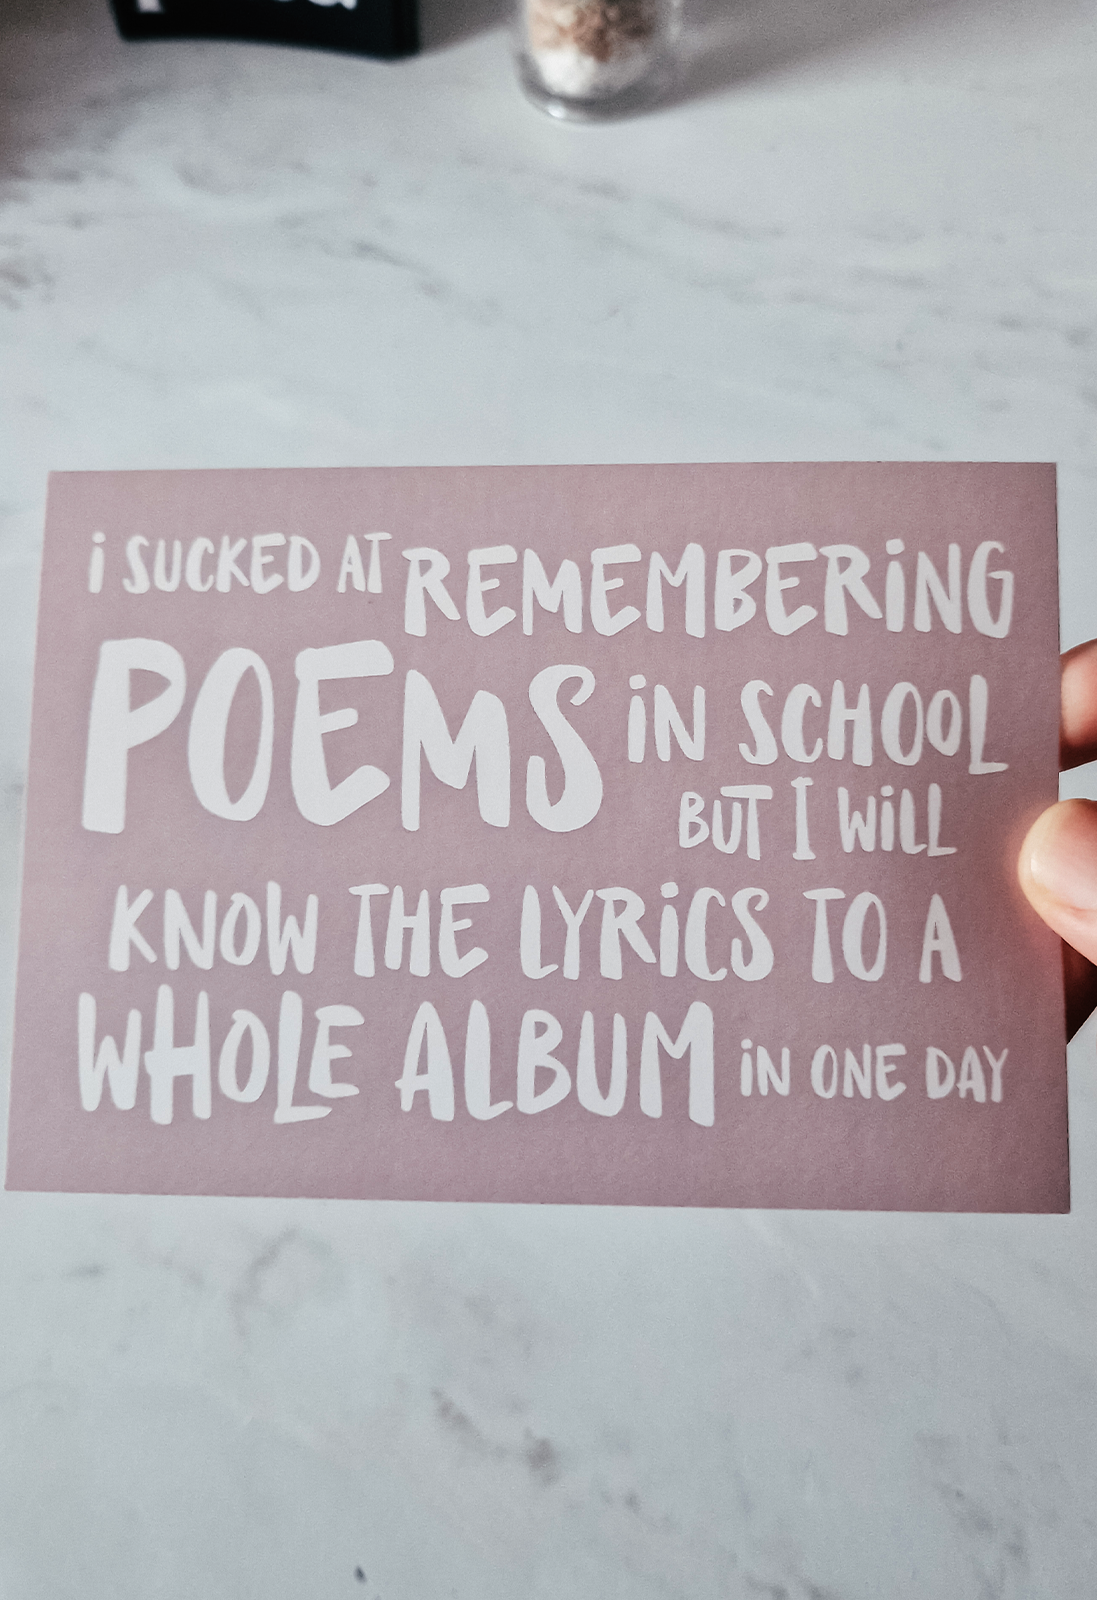 i SUCKED AT REMEMBERiNG
POEMS iN SCHOOL
BUT I WiLL
KNOW THE LYRiCS TO A
WHOLE ALBUM iN ONE DAY